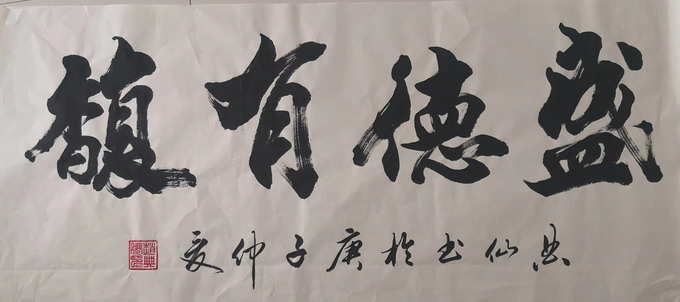 盛德有馥
典仙书於庚子仲夏